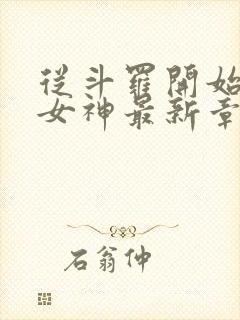 從斗羅開始
女神最新章
石翁仲